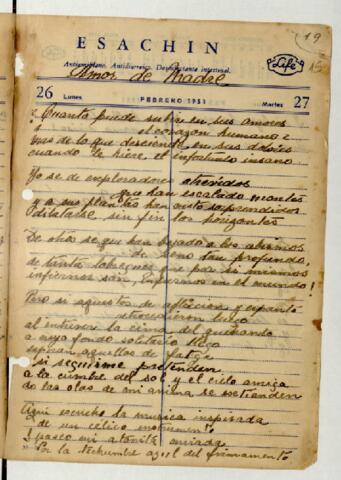 19
15
ESACHIN
Antiamebiano. Antidiarreico. Desinfectante intestinal.
Life
Amor de Madre
26 Lunes FEBRERO 1951 Martes 27
Cuanto puede subir en sus amores
el corazon humano
mas de lo que desciende en sus dolores
cuando le hiere el infortunio insano
Yo se de exploradores atrevidos
que han escalado montes
y a sus plantas han visto
dilatarse sin fin los horizontes
De otros se que han bajado a los abismos
de seno tan profundo,
de tanta lobreguez que por si mismos
infiernos son, infiernos en el mundo!
Pero si aquestos de afliccion y espanto
retrocedieron luego
al entrever la cima del quebranto
a cuyo fondo solitario llego
aquellos de fatiga
si seguirme pretenden
a la cumbre del sol y el cielo amiga
do las olas de mi anima se
Aqui escucho la musica inspirada
de un celico instrumento
y paseo mi atonita mirada
Por la techumbre azul del firmamento